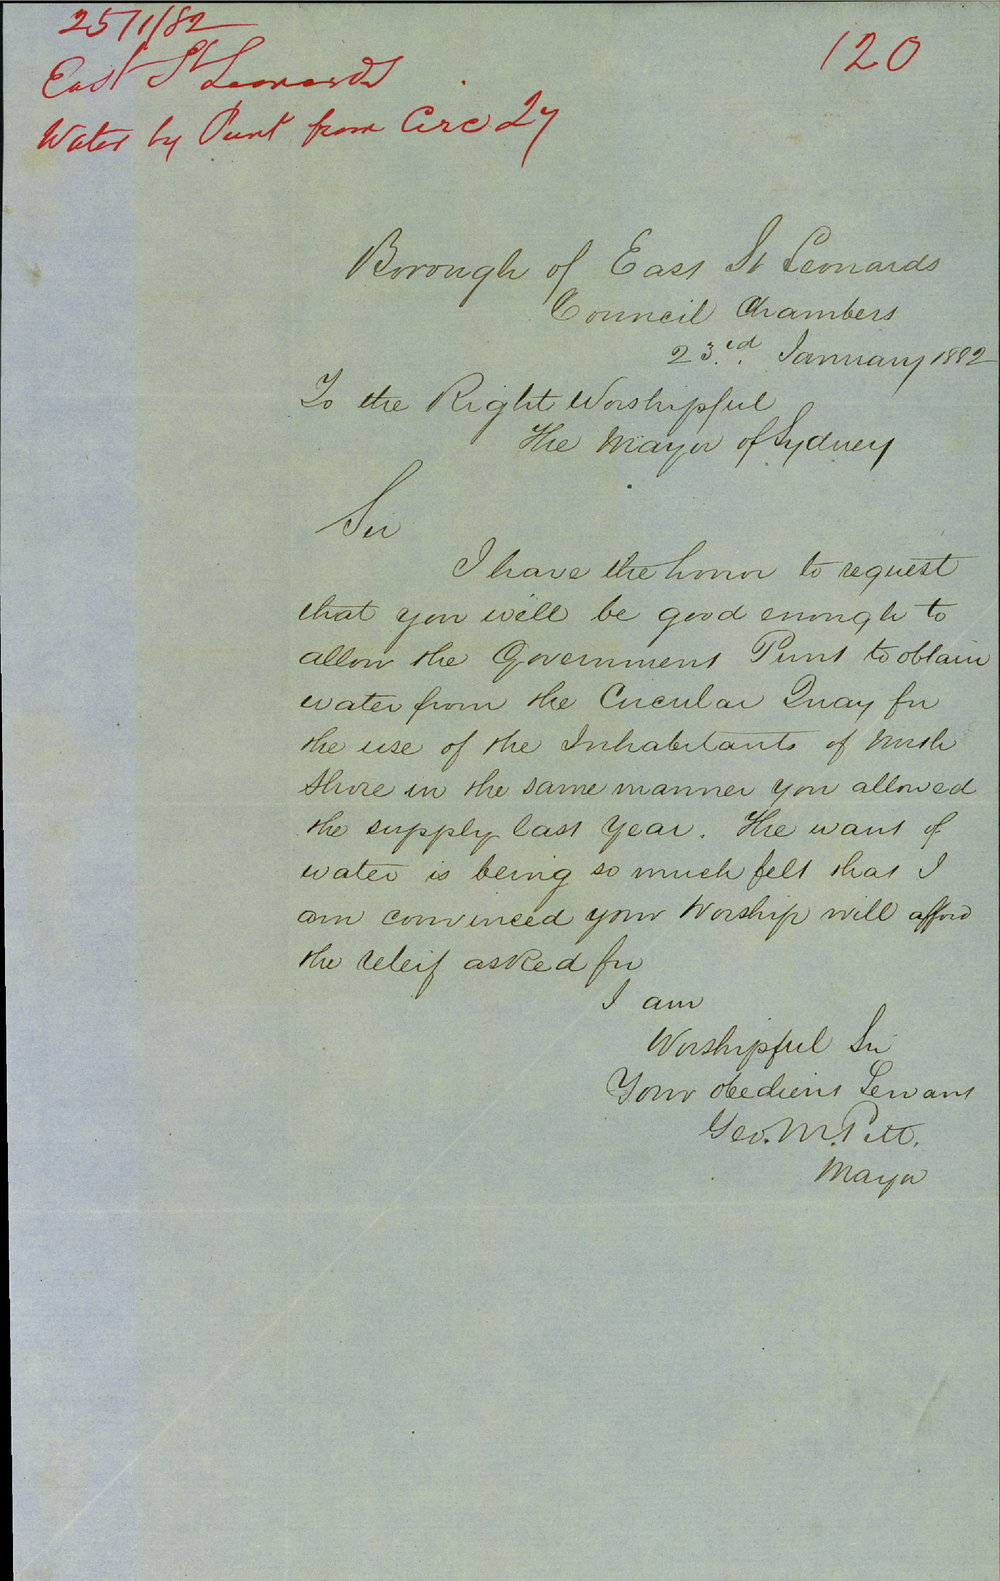 25/1/82
120
East St Leonards
Water by Punt from Circ Qy
Borough of East St Leonards
Council Chambers
23rd January 1882
To the Right Worshipful
The Mayor of Sydney
Sir
I have the honor to request
that you will be good enough to
allow the Government Punt to obtain
water from the Circular Quay for
the use of the Inhabitants of North
Shore in the same manner you allowed
the supply last year. The want of
water is being so much felt that I
am convinced your Worship will afford
the releif asked for
I am
Worshipful Sir
Your obedient Servant
Geo. M. Pitt.
Mayor